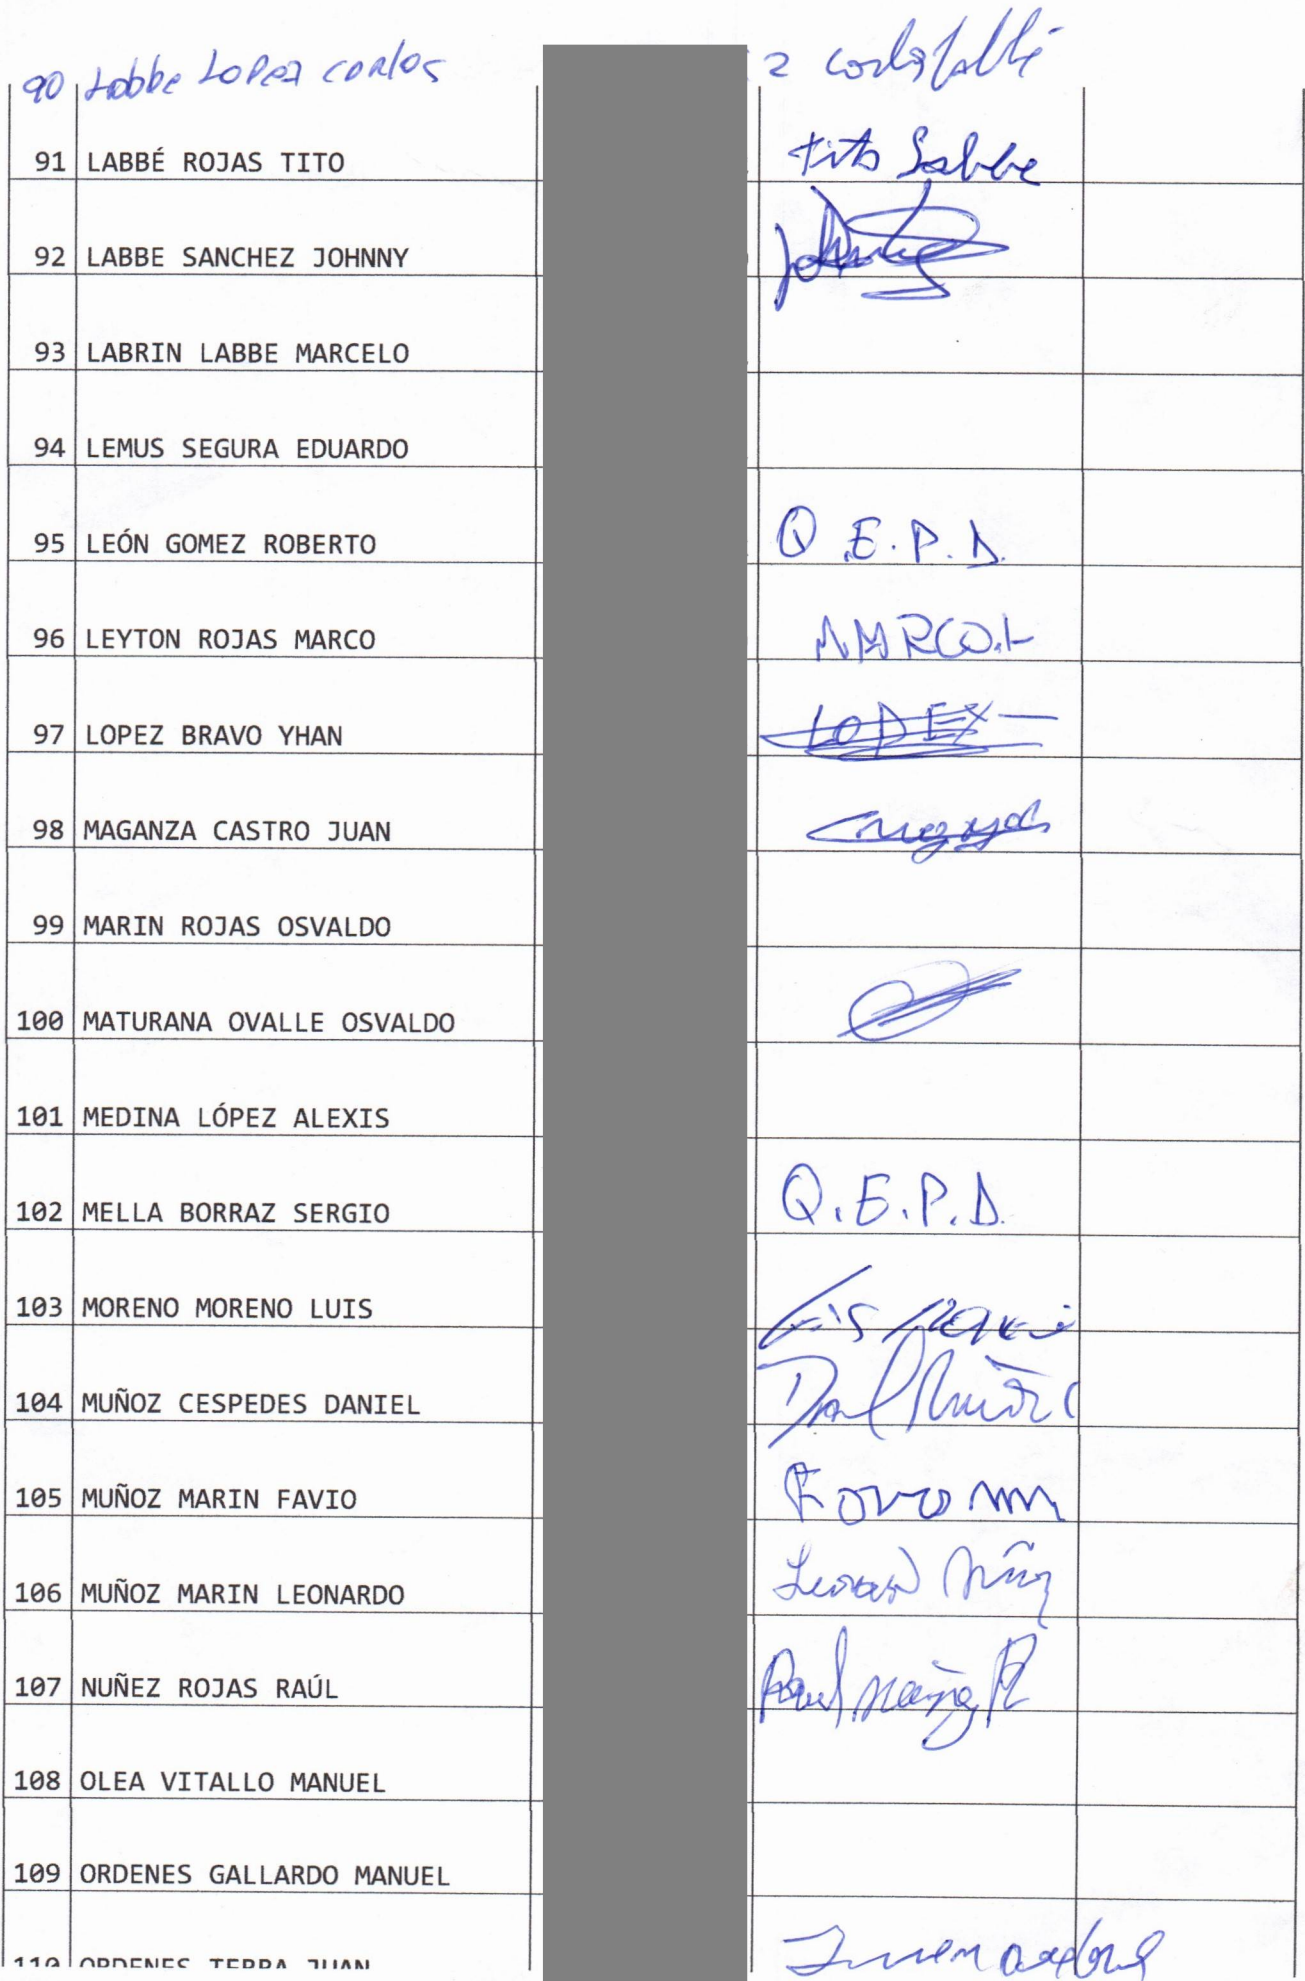 90 Labbe Lopez carlos 2
91 LABBÉ ROJAS TITO Tito Labbe
92 LABBE SANCHEZ JOHNNY Johnny
93 LABRIN LABBE MARCELO
94 LEMUS SEGURA EDUARDO
95 LEÓN GOMEZ ROBERTO Q.E.P.D.
96 LEYTON ROJAS MARCO MARCO.L
97 LOPEZ BRAVO YHAN LOPEX
98 MAGANZA CASTRO JUAN
99 MARIN ROJAS OSVALDO
100 MATURANA OVALLE OSVALDO
101 MEDINA LÓPEZ ALEXIS
102 MELLA BORRAZ SERGIO Q.E.P.D.
103 MORENO MORENO LUIS
104 MUÑOZ CESPEDES DANIEL
105 MUÑOZ MARIN FAVIO
106 MUÑOZ MARIN LEONARDO
107 NUÑEZ ROJAS RAÚL Raul
108 OLEA VITALLO MANUEL
109 ORDENES GALLARDO MANUEL
110 ORDENES TERRA JUAN